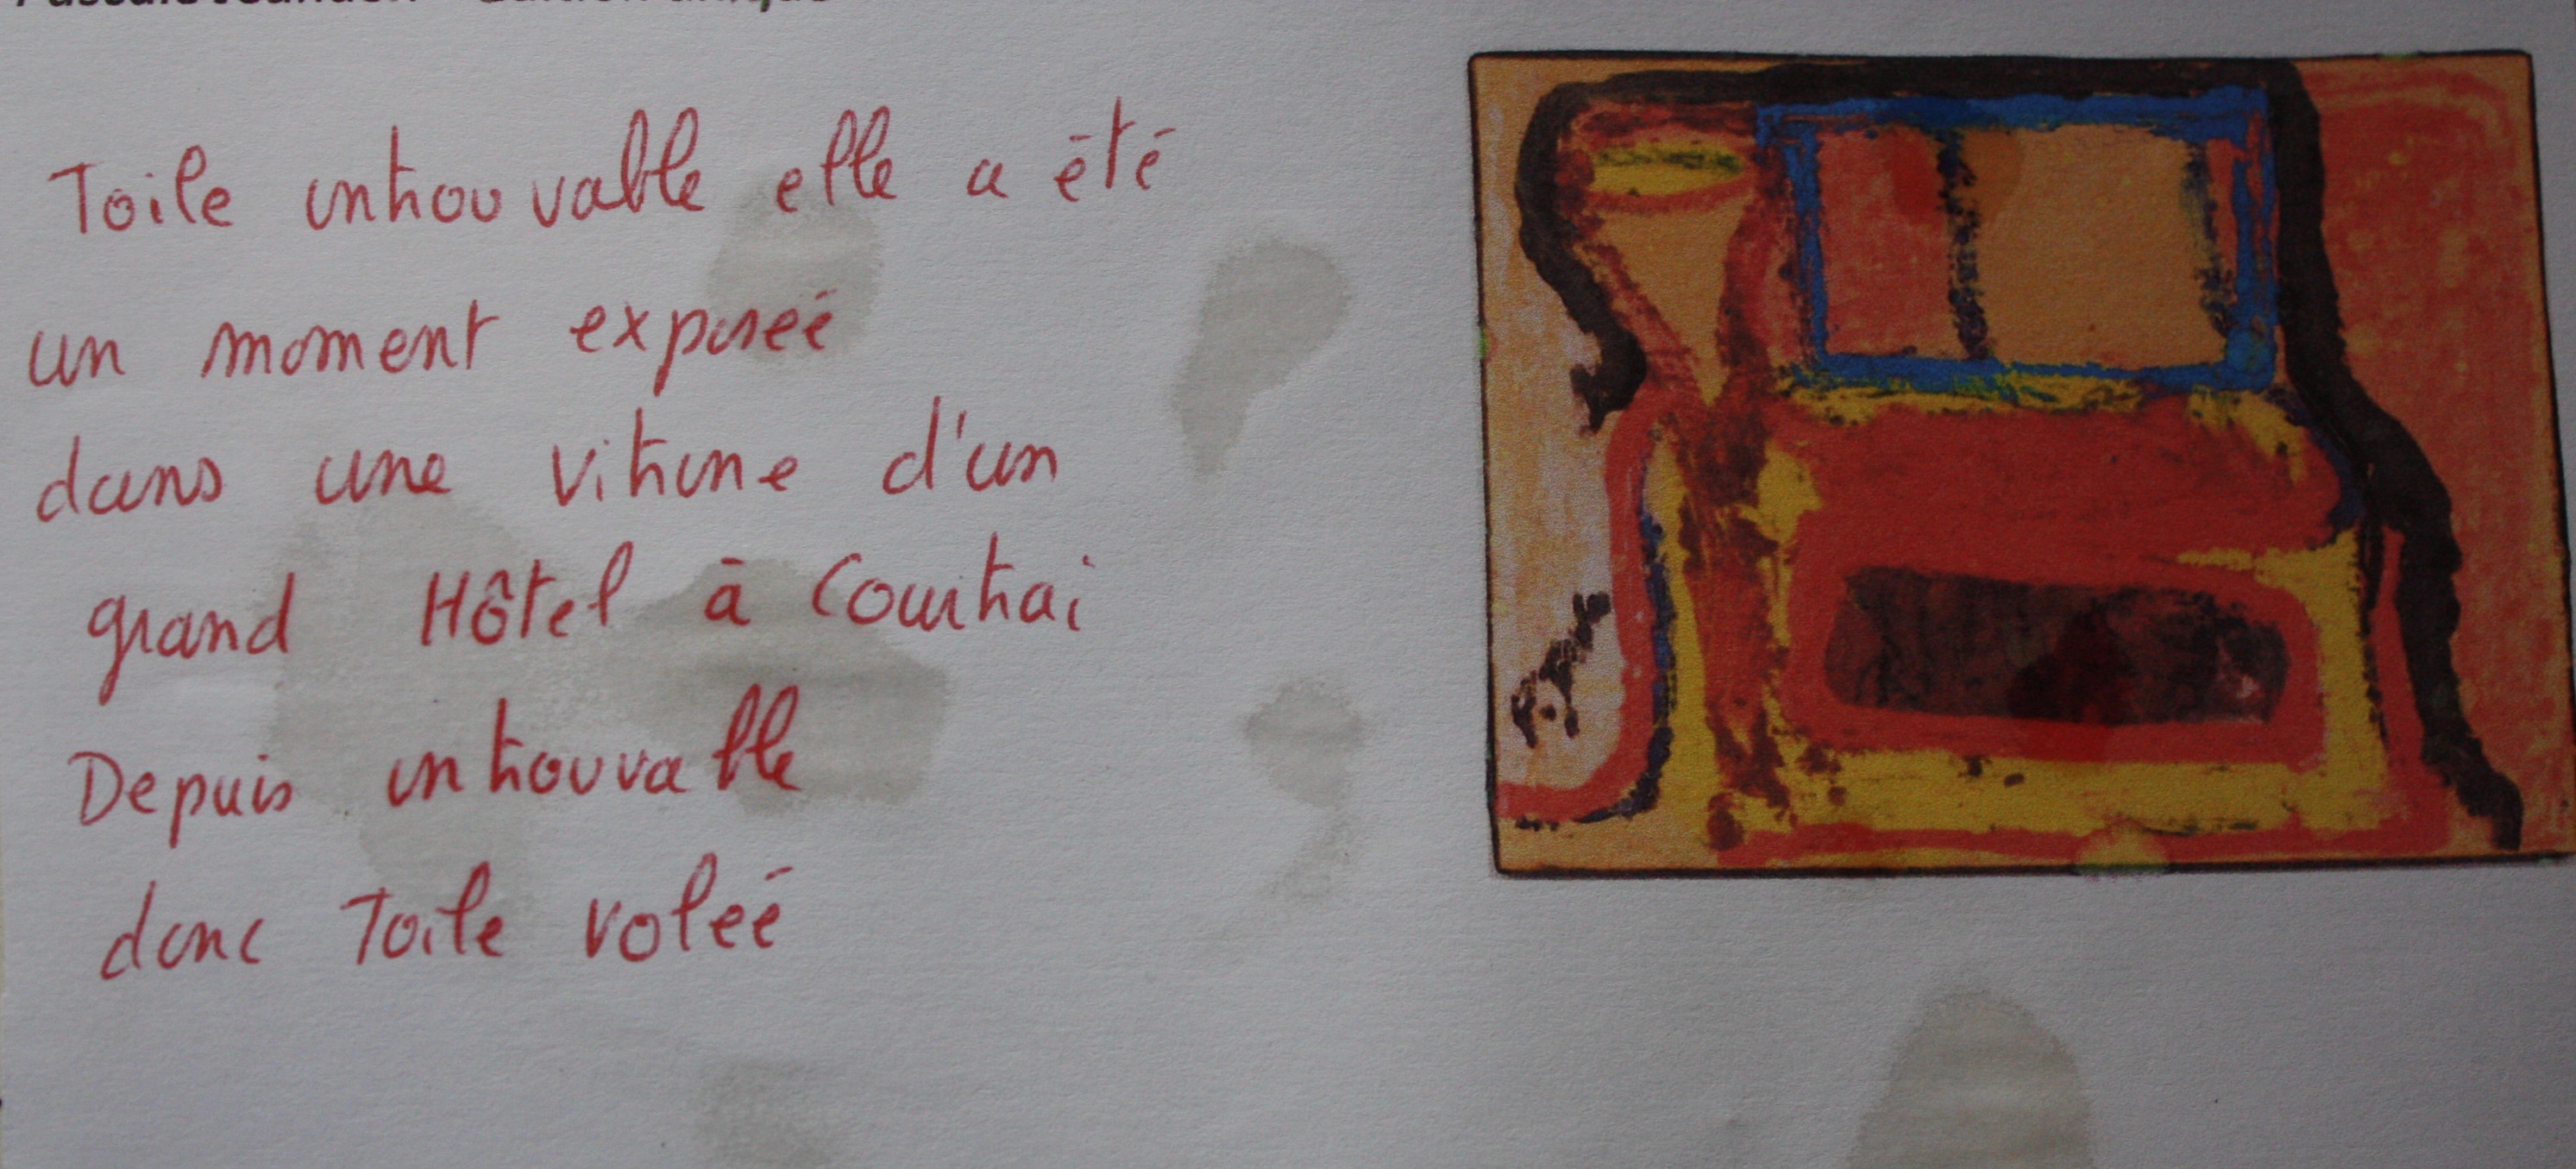 Toile introuvable elle a été
un moment exposée
dans une vitrine d'un
grand Hôtel à Courtrai
Depuis introuvable
donc Toile volée